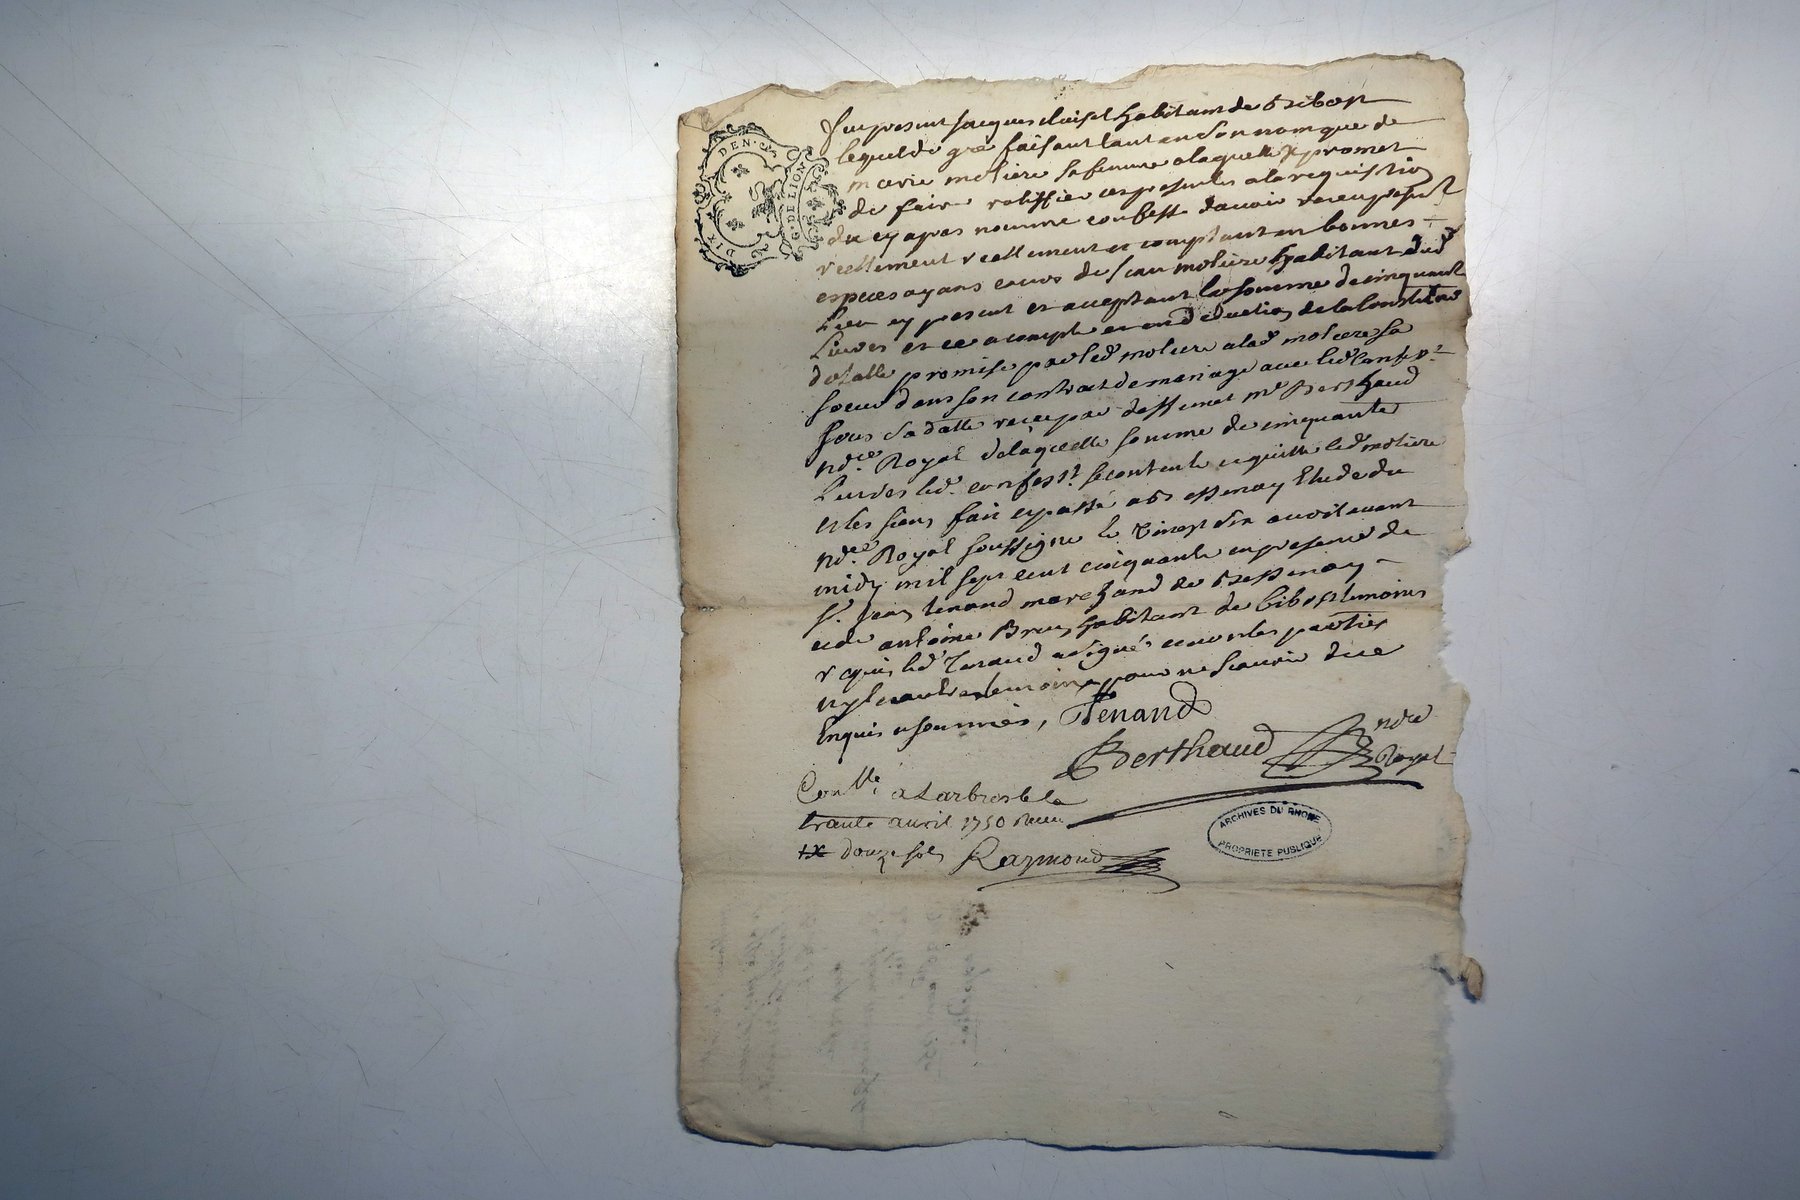 DIX DEN.ers
G. DE LION
fut present Jacques habitant de Bibost
lequel de gré faisant tant en son nom que de
marie moliere sa femme a laquelle Il promet
de faire ratiffier ces presentes a la requisition
du cy apres nommé confesse davoir receu presentt
reellement et comptant en bonnes
especes ayans cours de Jean moliere habitant dud
Lieu cy present et acceptant la somme de cinquante
Livres et ce a compte et en deduction de la Constitu͠on
dotalle promise par led moliere a lad moliere sa
soeur dans son contract de mariage avec led Confess.t
sous sa datte receu par deffunct me Berthaud
no.re Royal de laquelle somme de cinquante
Livres led. confess.t se contente et quitte led moliere
et les siens fait et passé a Bessenay Etude du
no.re Royal soussigné le vingt six avril avant
midy mil sept cent cinquante en presence de
sr. Jean tenand marchand de Bessenay
et de antoine Brun habitant de bibost temoins
requis led Tenand a signé et non les parties
ny l'autre temoin pour ne scavoir de ce
Enquis et sommés, Tenand
Berthaud nore Royal
Con.lle a Larbresle le
trante avril 1750 Receu
douze sols Raymond
ARCHIVES DU RHONE
PROPRIETE PUBLIQUE